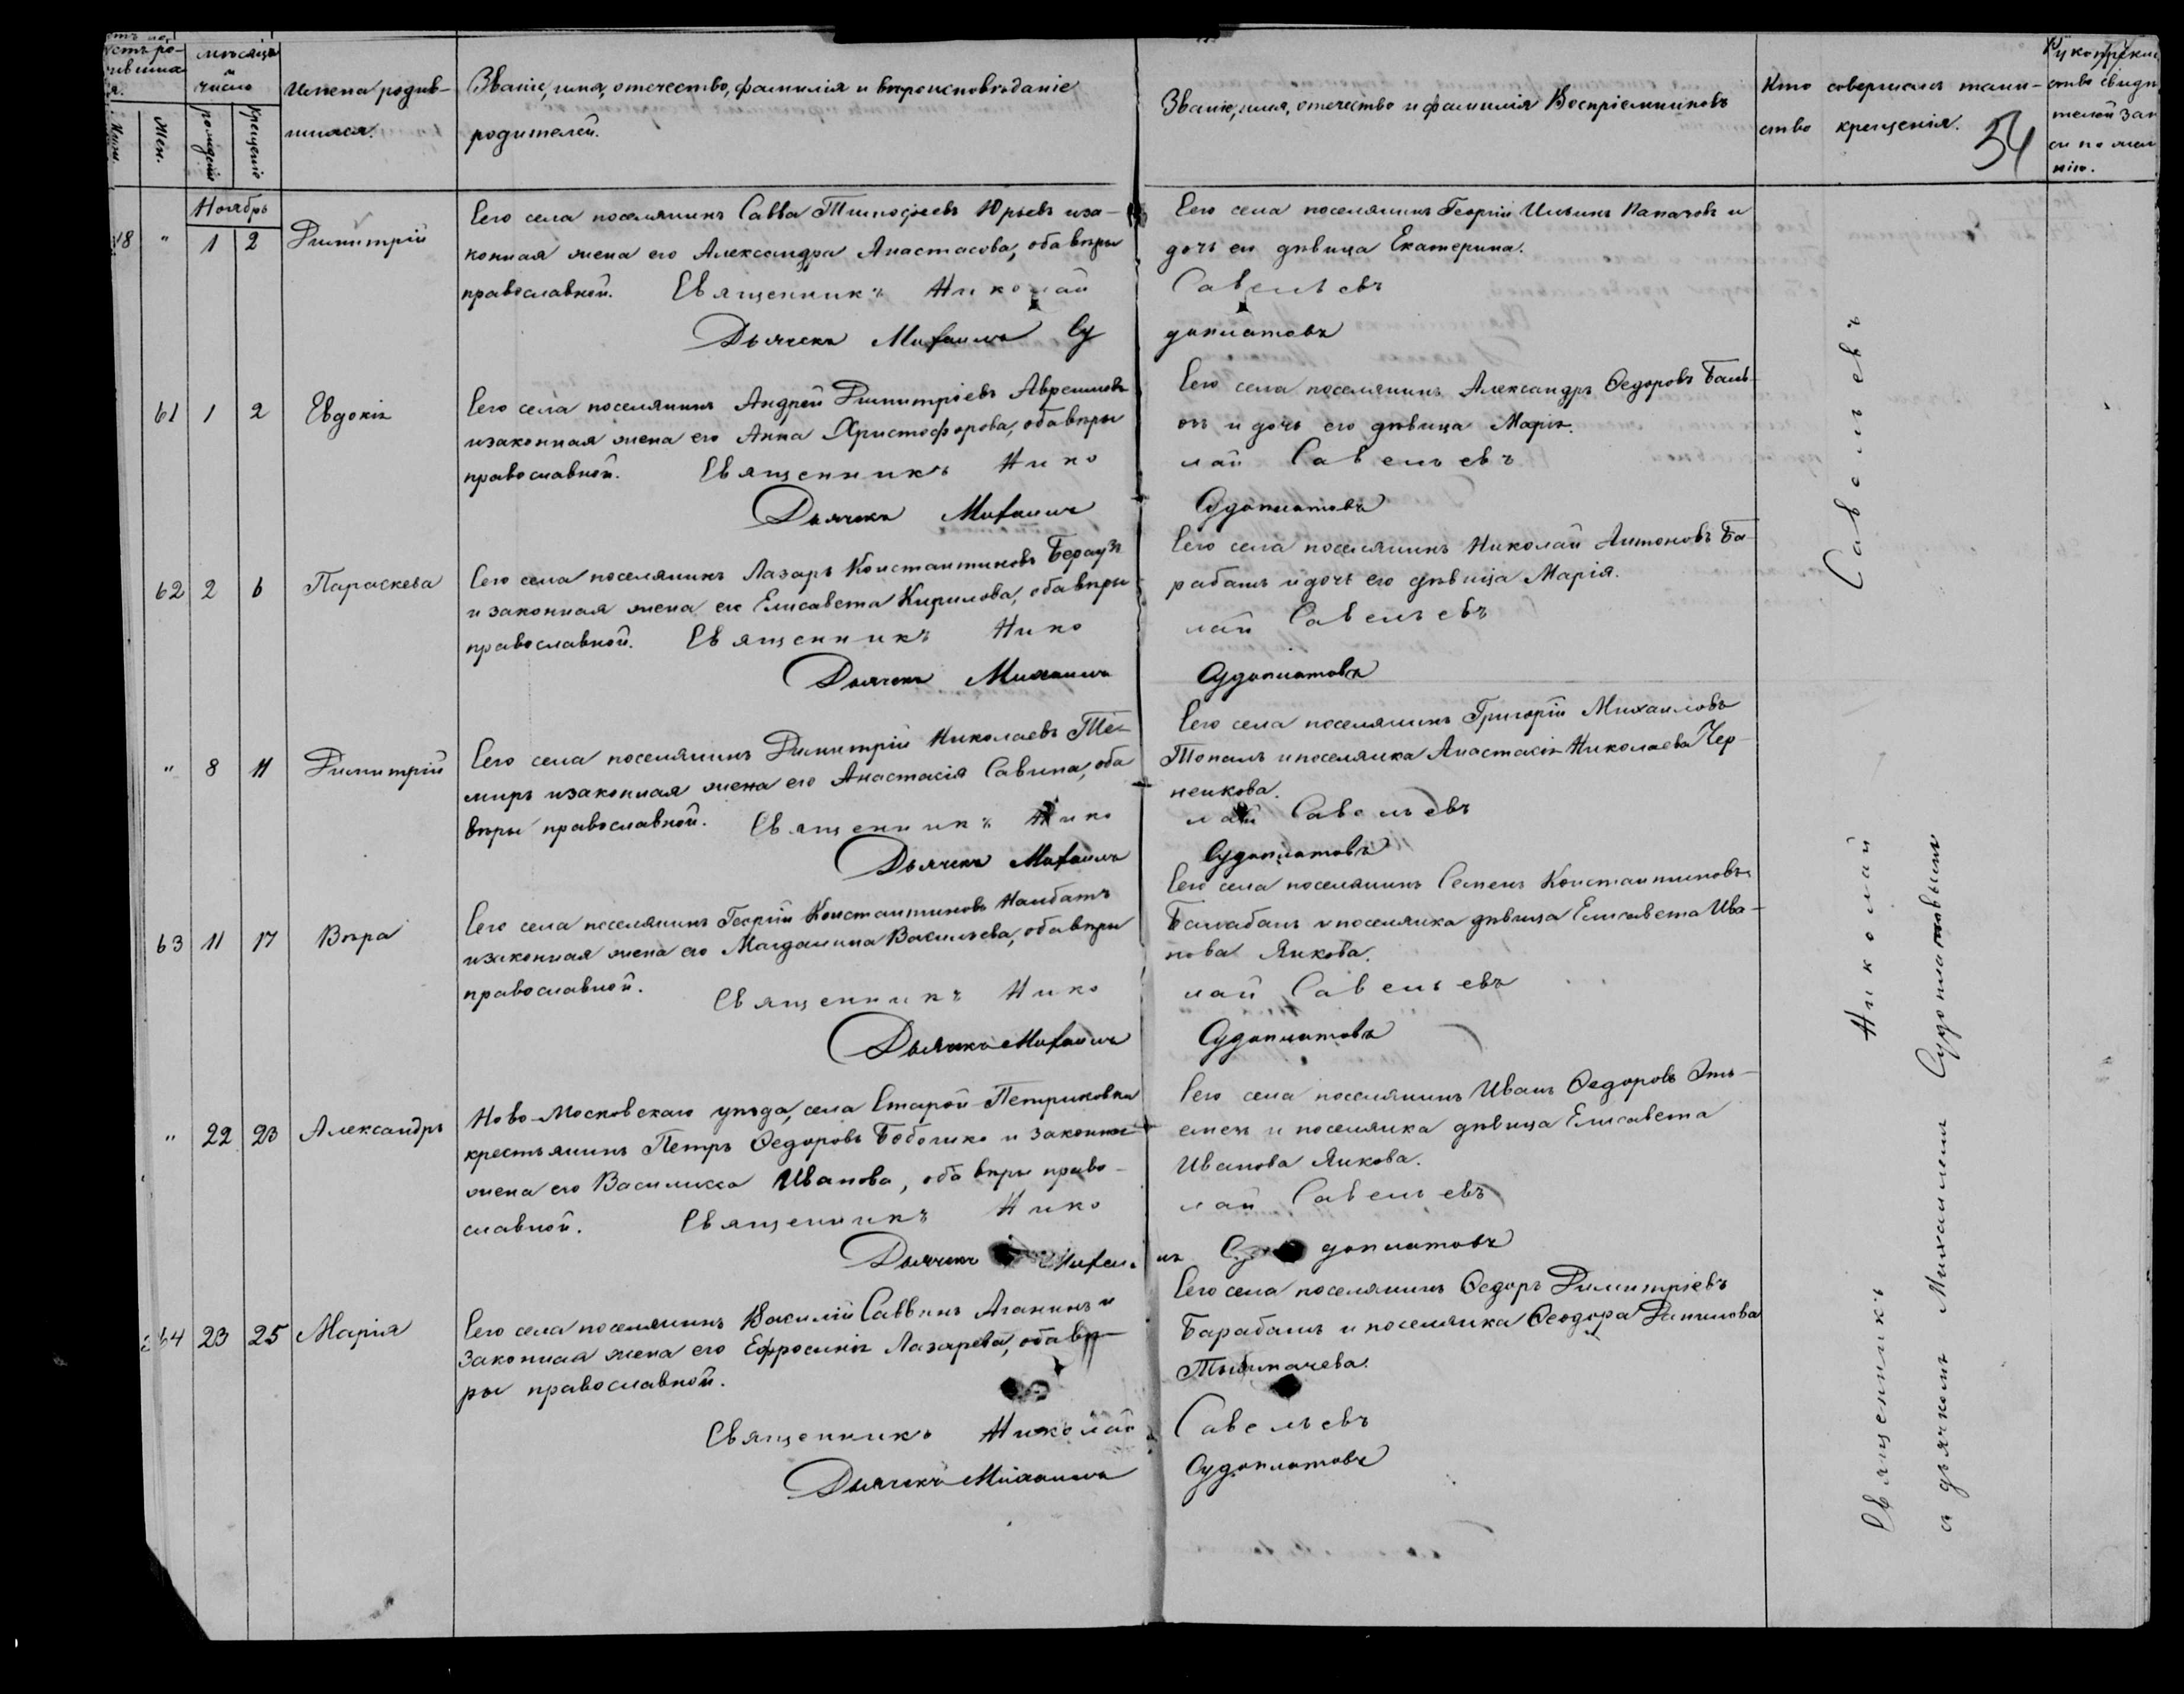 мѣсяцъ
и
число
Муж.
Жен.
рожденіе
крещеніе
Имена родив-
шихся.
Званіе, имя, отечество, фамилія и вѣроисповѣданіе
родителей.
Званіе, имя, отечество и фамилія Воспріемниковъ
Кто совершалъ таин-
ство крещенія.
54
Рукоприклад
ство свидѣ
телей зап
си по жел
нію.
Ноябрь
18 " 1 2 Димитрій
Сего села поселянинъ Савва Тимофеевъ Юрьевъ и за-
конная жена его Александра Анастасова, оба вѣры
православной. Священникъ Николай
Дьячекъ Михаилъ Су
Сего села поселянинъ Георгій Ильинъ Папазовъ и
дочь ея дѣвица Екатерина.
Савельевъ
доплатовъ
61 1 2 Евдокія
Сего села поселянинъ Андрей Димитріевъ Аврамовъ
и законная жена его Анна Христофорова, оба вѣры
православной. Священникъ Нико
Дьячекъ Михаилъ
Сего села поселянинъ Александръ Ѳедоровъ Баль-
и дочь его дѣвица Марія.
лай Савельевъ
Судоплатовъ
62 2 6 Параскева
Сего села поселянинъ Лазарь Константиновъ Берауз
и законная жена его Елисавета Кирилова, оба вѣры
православной. Священникъ Нико
Дьячекъ Михаилъ
Сего села поселянинъ Николай Антоновъ Ба-
рабашъ и дочь его дѣвица Марія.
лай Савельевъ
Судоплатовъ
" 8 11 Димитрій
Сего села поселянинъ Димитрій Николаевъ Те-
миръ и законная жена его Анастасія Савина, оба
вѣры православной. Священникъ Нико
Дьячекъ Михаилъ
Сего села поселянинъ Григорій Михаиловъ
Топалъ и поселянка Анастасія Николаева Чер-
ненкова.
лай Савельевъ
Судоплатовъ
63 11 17 Вѣра
Сего села поселянинъ Георгій Константиновъ Налбатъ
и законная жена его Магдалина Васильева, оба вѣры
православной.
Священникъ Нико
Дьячекъ Михаилъ
Сего села поселянинъ Семенъ Константиновъ
Балабанъ и поселянка дѣвица Елисавета Ива-
нова Янкова.
лай Савельевъ
Судоплатовъ
" 22 23 Александръ
Ново-Московскаго уѣзда, села Старой-Петриковки
крестьянинъ Петръ Ѳедоровъ и законная
жена его Василисса Иванова, оба вѣры право-
славной. Священникъ Нико
Дьячекъ Михаи
Сего села поселянинъ Иванъ Ѳедоровъ
и поселянка дѣвица Елисавета
Иванова Янкова.
лай Савельевъ
лъ Су доплатовъ
64 23 25 Марія
Сего села поселянинъ Василій Саввинъ Аганинъ и
законная жена его Ефросинія Лазарева, оба вѣ-
ры православной.
Священникъ Николай
Дьячекъ Михаилъ
Сего села поселянинъ Ѳедоръ Димитріевъ
Барабашъ и поселянка Ѳеодора
Савельевъ
Судоплатовъ
Священникъ Николай Савельевъ
съ дьячкомъ Михаиломъ Судоплатовымъ